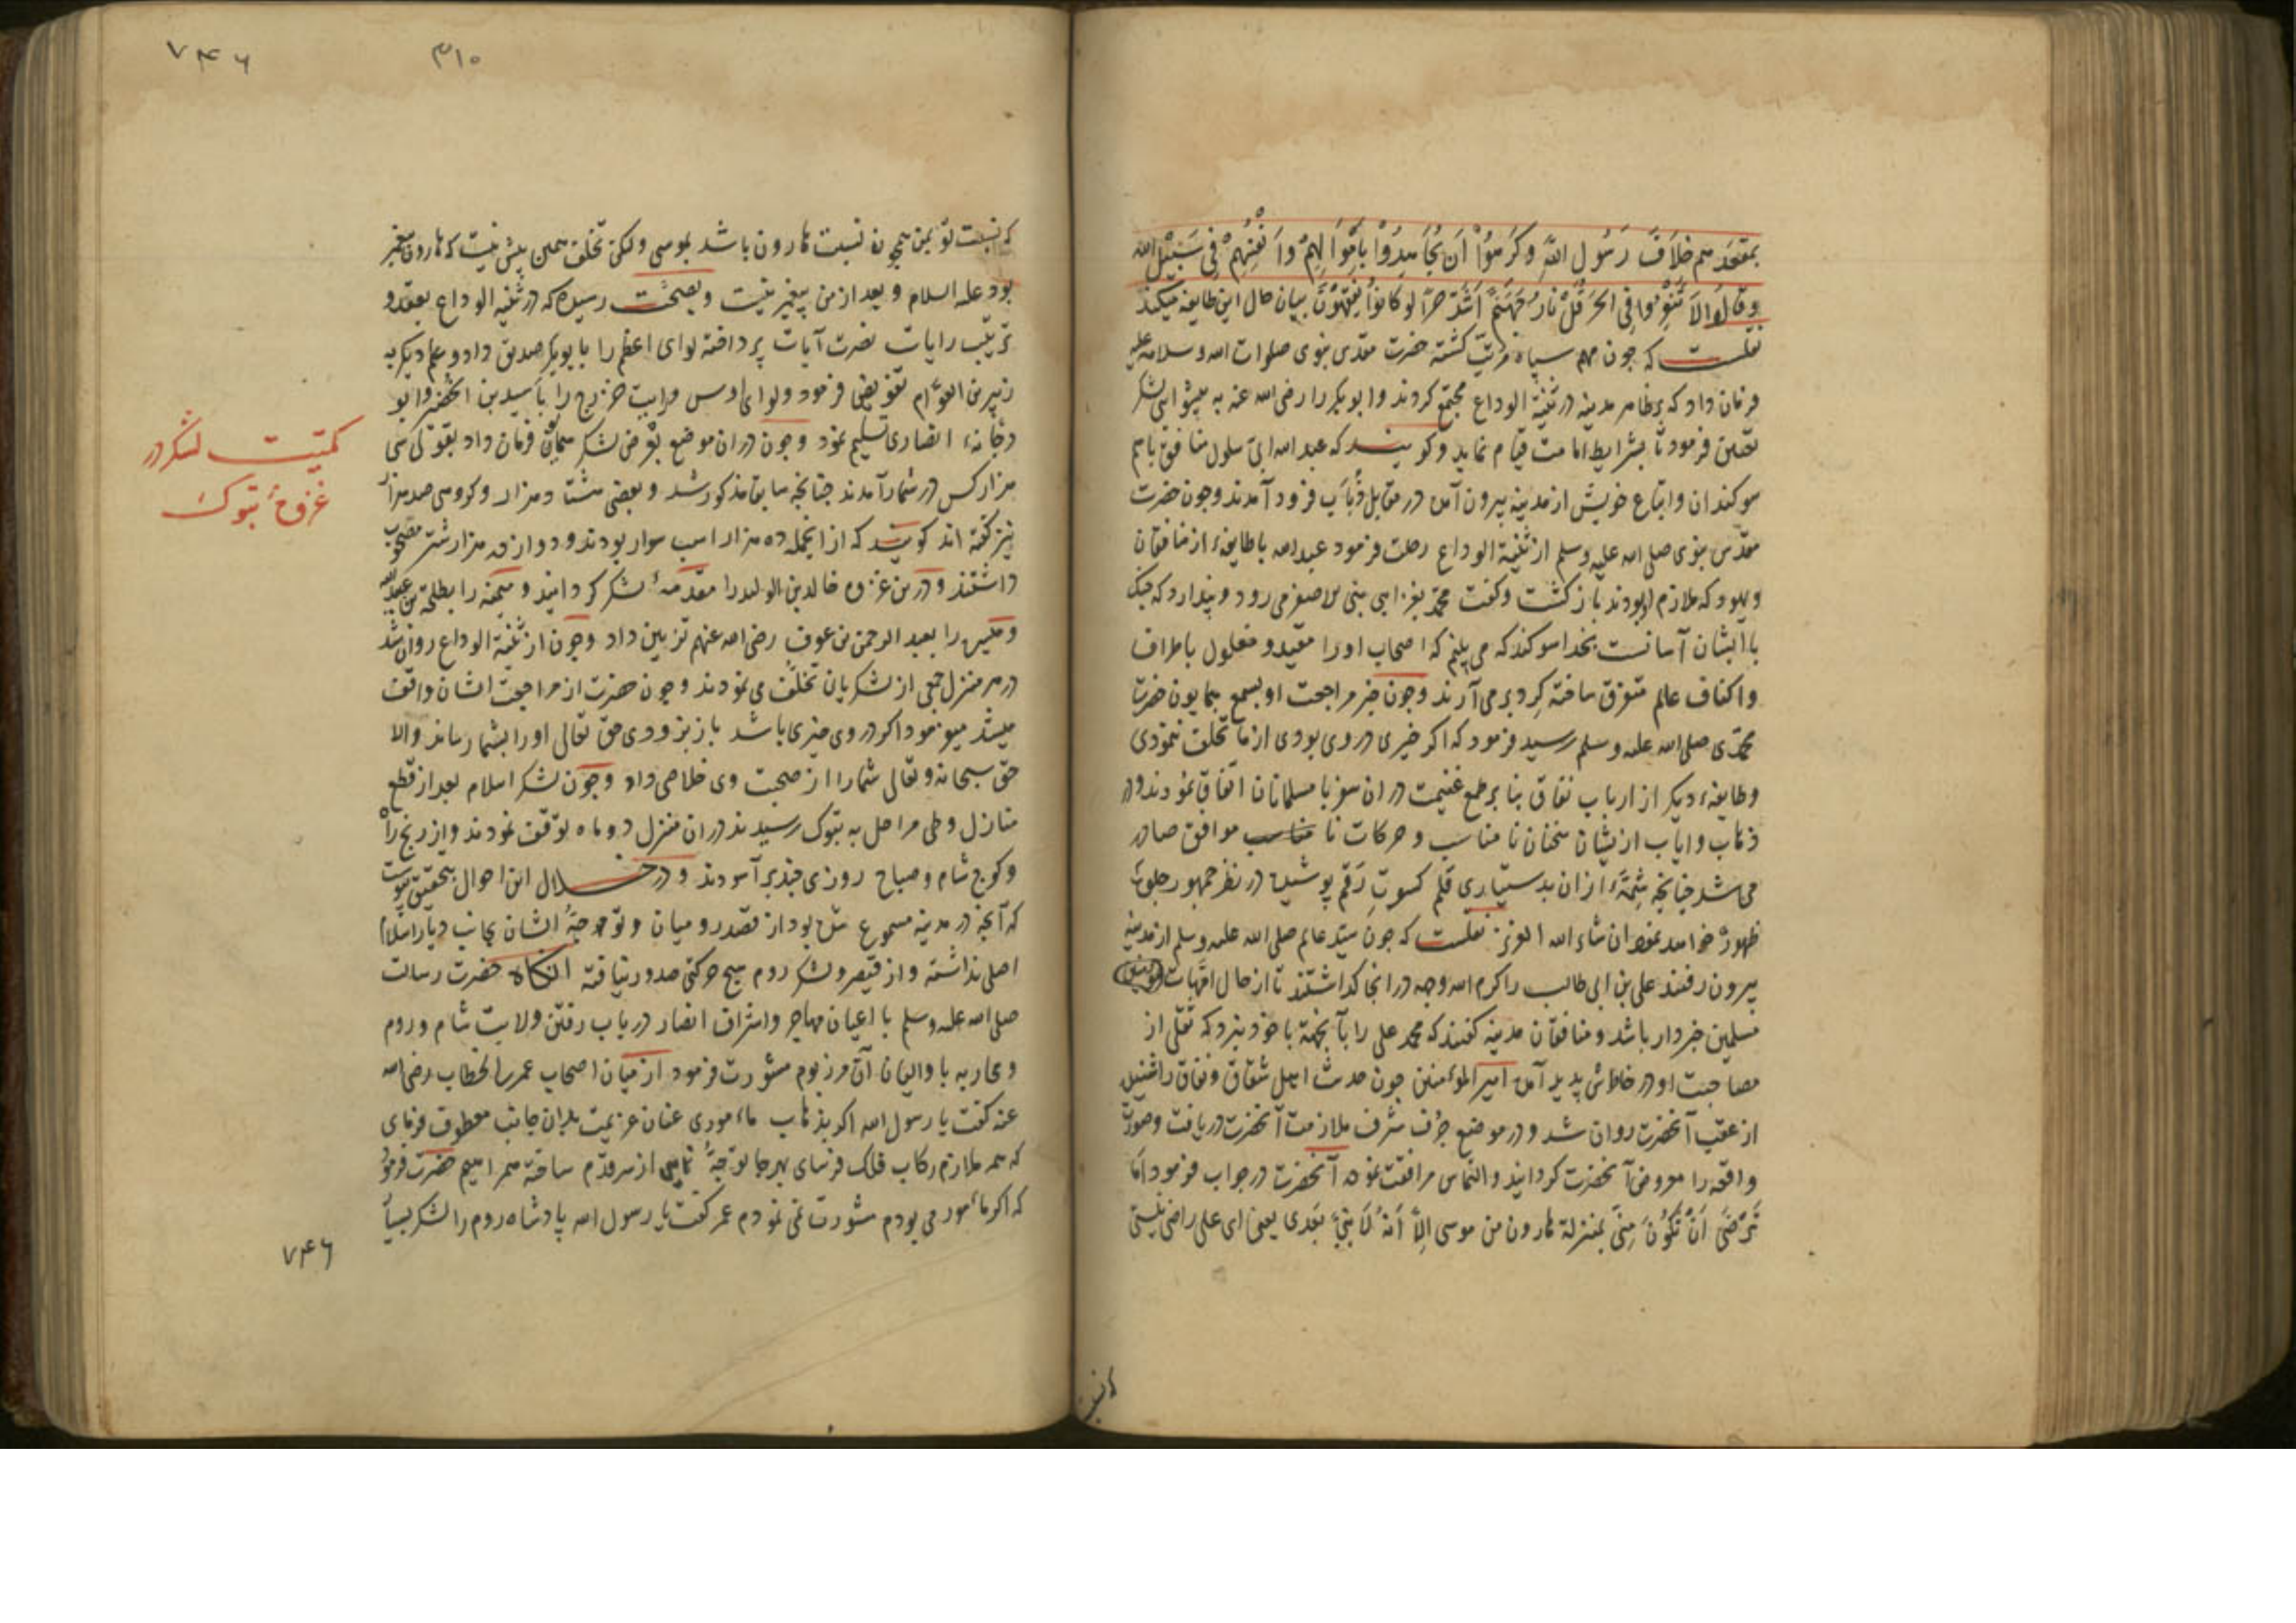 بمقعدهم خلاف رسول الله وکرهوا ان یجاهدوا باموالهم وانفسهم فی سبیل الله
وقالوا لا تنفروا فی الحر قل نار جهنم اشد حرا لو کانوا یفقهون بیان حال این طایفه میکند
نقلست که چون مهم سپاه مرتب کشته حضرت مقدس نبوی صلوات الله وسلامه علیه
فرمان داد که بظاهر مدینه در ثنیة الوداع مجتمع کردند وابوبکر را رضی الله عنه به پیشوایی لشکر
تعیین فرمود تا بشرایط امامت قیام نماید وکویند که عبدالله ابی سلول منافق باهم
سوکندان واتباع خویش از مدینه بیرون آمده در مقابل ذباب فرود آمدند وچون حضرت
مقدس نبوی صلی الله علیه وسلم از ثنیة الوداع رحلت فرمود عبدالله با طایفهٔ از منافقان
ویهود که ملازم او بودند باز کشت وکفت محمد بغزای بنی الاصفر می رود وپندارد که جنک
با ایشان آسانست بخدا سوکند که می بینم که اصحاب او را مقید ومغلول باطراف
واکناف عالم متفرق ساخته کرد بر می آرند وچون خبر مراجعت او بسمع همایون حضرت
محمدی صلی الله علیه وسلم رسید فرمود که اکر خیری در وی بودی از ما تخلف ننمودی
وطایفهٔ دیکر از ارباب نفاق بنا بر طمع غنیمت در ان سفر با مسلمانان اتفاق نمودند ودر
ذهاب وایاب ازیشان سخنان نا مناسب وحرکات نا مناسب موافق صادر
می شد چنانچه شمهٔ از ان بدستیاری قلم کسوت رقم پوشیده در نظر جمهور جلوهٔ
ظهور خواهد نمود ان شاء الله العزیز نقلست که چون سید عالم صلی الله علیه وسلم از مدینه
بیرون رفتند علی بن ابی طالب را کرم الله وجهه در انجا کذاشتند تا از حال امهات مومنین
مسلمین خبردار باشد ومنافقان مدینه کفتند که محمد علی را بآنجهة با خود نبرد که ثقلی از
مصاحبت او در خاطرش پدید آمده امیر المؤمنین چون حدیث اهل شقاق ونفاق را شنیده
از عقب آنحضرت روان شد ودر موضع جرف شرف ملازمت آنحضرت دریافت وصورت
واقعه را معروض آنحضرت کردانید والتماس مرافقت نموده آنحضرت در جواب فرمود اما
ترضی ان تکون منی بمنزلة هارون من موسی الا انه لا نبی بعدی یعنی ای علی راضی نیستی
که نسبت
۷۴۶
۳۱۰
که نسبت تو بمن همچون نسبت هارون باشد بموسی ولکن تخلف همین بیش نیست که هارون پیغمبر
بود علیه السلام وبعد از من پیغمبر نیست وبصحت رسیده که در ثنیة الوداع بعقد و
ترتیب رایات نصرت آیات پرداخته لوای اعظم را بابوبکر صدیق داد وعلم دیکر به
زبیر بن العوام تفویض فرمود ولوای اوس ورایت خزرج را باسید بن الحضیر وابو
دجانهٔ انصاری تسلیم نمود وچون در ان موضع بعرض لشکر همایون فرمان داد بقولی سی
هزار کس در شمار آمدند چنانچه سابق مذکور شد وبعضی هشتاد هزار وکروهی صد هزار
نیز کفته اند کویند که از انجمله ده هزار اسب سوار بودند ودوازده هزار شتر مصحوب
داشتند ودرین غزوه خالد بن الولید را مقدمهٔ لشکر کردانید ومیمنه را بطلحة بن عبیدالله
ومیسره را بعبد الرحمن بن عوف رضی الله عنهم تزیین داد وچون از ثنیة الوداع روان شد
در هر منزل جمعی از لشکریان تخلف می نمودند وچون حضرت از مراجعت ایشان واقف
میشد میفرمود اکر در وی خیری باشد باز بزودی حق تعالی او را بشما رساند والا
حق سبحانه وتعالی شما را از صحبت وی خلاصی داد وچون لشکر اسلام بعد از قطع
منازل وطی مراحل به تبوک رسیدند در ان منزل دو ماه توقف نمودند واز رنج راه
وکوچ شام وصباح روزی چند برآسودند ودر خلال این احوال بتحقیق پیوست
که آنچه در مدینه مسموع شده بود از قصد رومیان وتوجه ایشان بجانب دیار اسلام
اصلی نداشته واز قیصر ولشکر روم هیچ حرکتی صدور نیافته انکاه حضرت رسالت
صلی الله علیه وسلم با اعیان مهاجر واشراف انصار در باب رفتن ولایت شام وروم
ومحاربه با والیان آن مرزبوم مشورت فرمود از میان اصحاب عمر بن الخطاب رضی الله
عنه کفت یا رسول الله اکر بذهاب ماموری عنان عزیمت بدان جانب معطوف فرمای
که همه ملازم رکاب فلک فرسای بهر جا توجه نمایی از سر قدم ساخته همراهیم حضرت فرمود
که اکر مامور می بودم مشورت نمی نمودم عمر کفت یا رسول الله پادشاه روم را لشکر بسیار
کمیت لشکر در
غزوهٔ تبوک
۷۴۶